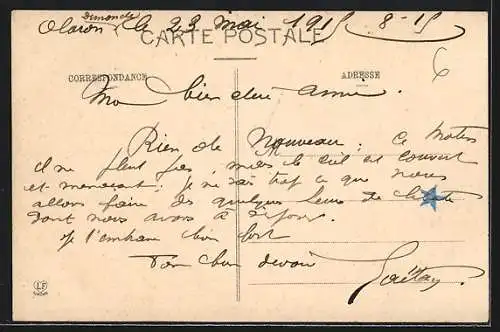 dimanche
Oloron, le 23 mai 1915 8-15
CARTE POSTALE
6
CORRESPONDANCE
ADRESSE
Ma bien chère amie.
Rien de Nouveau; Ce matin
il ne pleut pas, mais le ciel est couvert
et menaçant; je ne sais trop ce que nous
allons faire des quelques heures de liberté
dont nous avons à
je t'embrasse bien fort
Ton bien dévoué
LF